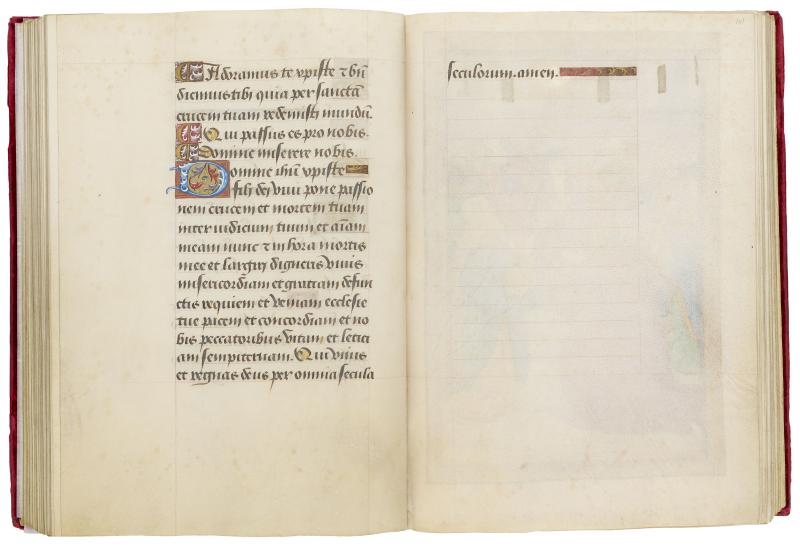 Adoramus te xpiste ⁊ bn̄
dicimus tibi quia per sanctā
crucem tuam redemisti mundū.
Qui passus es pro nobis.
Domine miserere nobis.
Domine ihū xpiste
fili dei viui pone passio
nem crucem et mortem tuam
inter iudicium tuum et aīam
meam nunc ⁊ in hora mortis
mee et largiri digneris viuis
misericordīam et gratiam defun
ctis requiem et veniam ecclesie
tue pacem et concordiam et no
bis peccatoribus vitam et letici
am sempiternam. Qui viuis
et regnas deus per omnia secula
seculorum. amen.